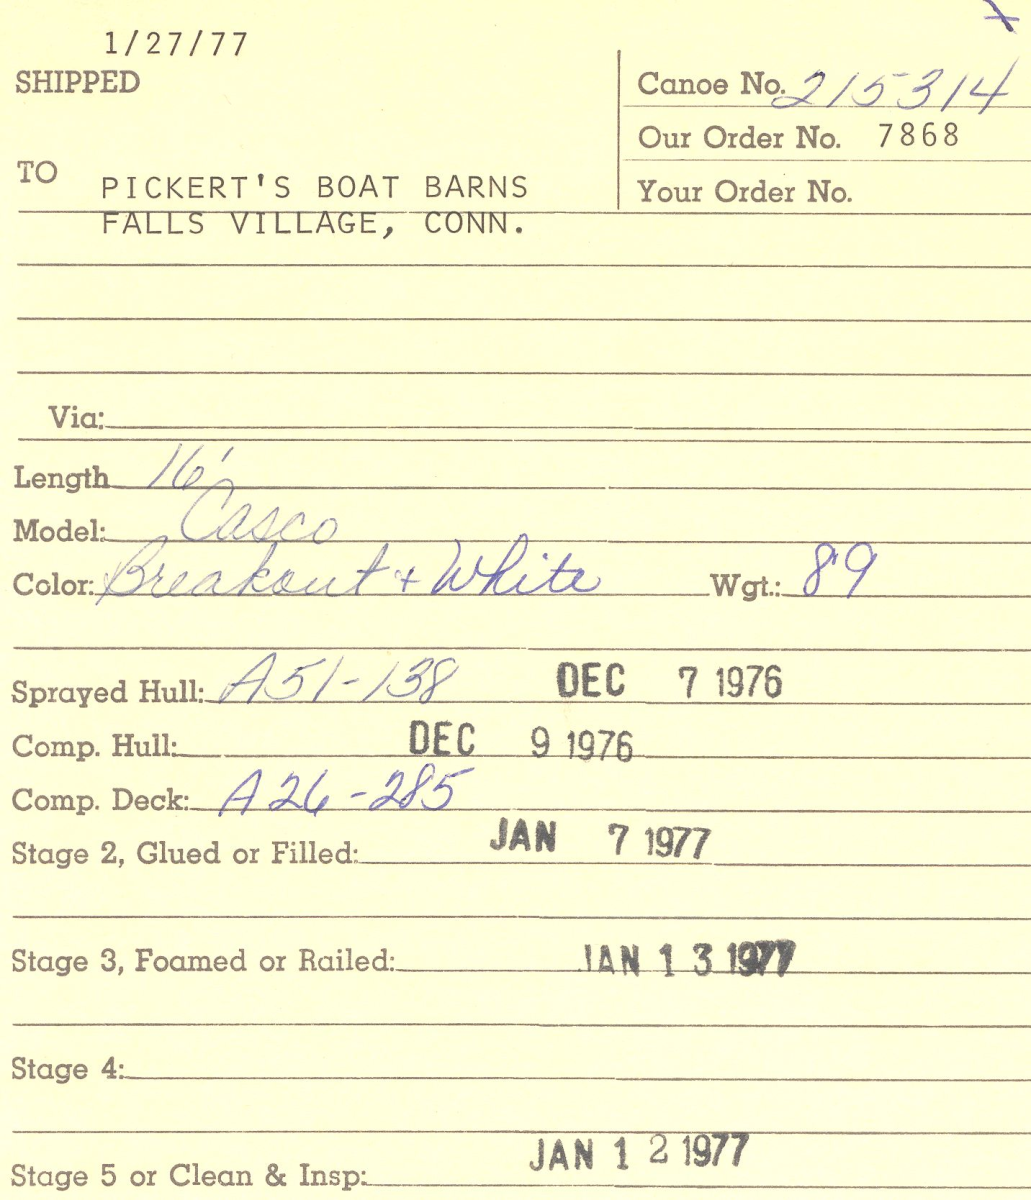 1/27/77
SHIPPED
Canoe No. 215314
Our Order No. 7868
TO PICKERT'S BOAT BARNS
Your Order No.
FALLS VILLAGE, CONN.
Via:
Length 16'
Model: Casco
Color: Breakout + White Wgt.: 89
Sprayed Hull: A51-138 DEC 7 1976
Comp. Hull: DEC 9 1976
Comp. Deck: A26-285
Stage 2, Glued or Filled: JAN 7 1977
Stage 3, Foamed or Railed: JAN 13 1977
Stage 4:
Stage 5 or Clean & Insp: JAN 12 1977